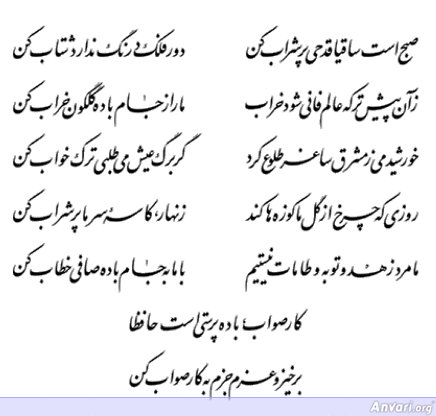 صبح است ساقیا قدحی پر شراب کن دور فلک درنگ ندارد شتاب کن
زآن پیشتر که عالم فانی شود خراب ما را ز جام باده گلگون خراب کن
خورشید می ز مشرق ساغر طلوع کرد گر برگ عیش می‌طلبی ترک خواب کن
روزی که چرخ از گل ما کوزه‌ها کند زنهار، کاسهٔ سر ما پر شراب کن
ما مرد زهد و توبه و طامات نیستیم با ما به جام باده صافی خطاب کن
کار صواب باده پرستی است حافظا
برخیز و عزم جزم به کار صواب کن
Anvari.org